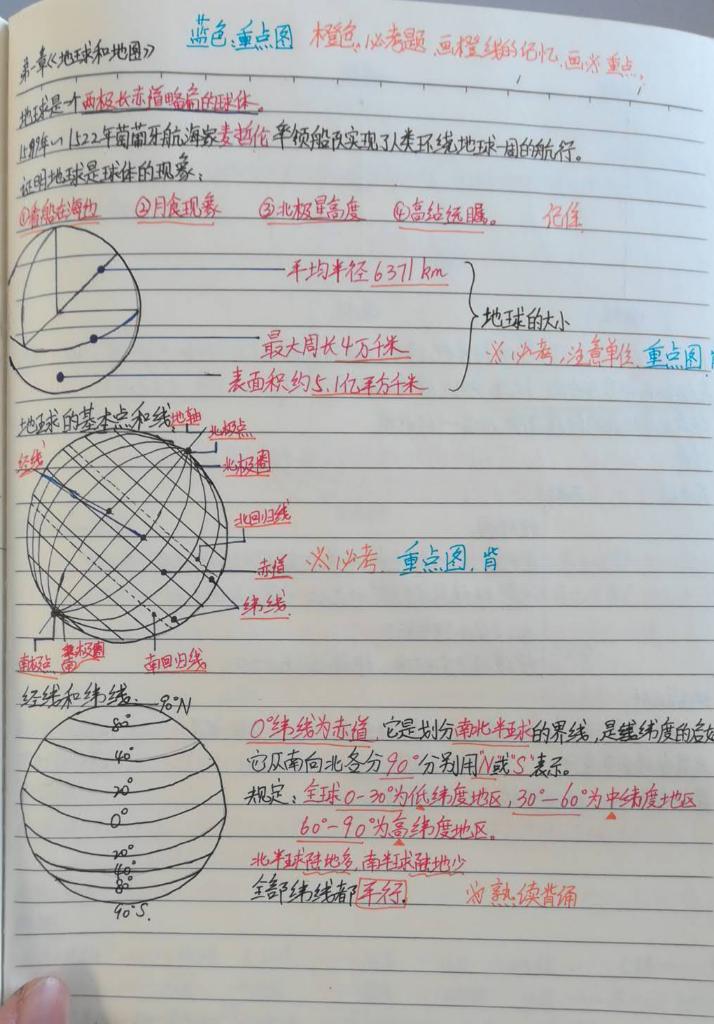 蓝色:重点图 橙色,必考题 画橙线的记忆,画※重点,
第一章《地球和地图》
地球是一个两极长赤道略扁的球体。
15 1522年葡萄牙航海家麦哲伦率领船队实现了人类环绕地球一周的航行。
证明地球是球体的现象:
①看船在海边 ②月食现象 ③北极星高度 ④高站远瞩。 记住
平均半径6371km
地球的大小
最大周长4万千米
※必考,注意单位,重点图,
表面积约5.1亿平方千米
地球的基本点和线
地轴
北极点
经线
北极圈
北回归线
赤道
※必考 重点图,背
纬线
南极点 南极圈 南回归线
经线和纬线.
90°N
80°
40°
20°
0°
20°
40°
80°
90°S.
0°纬线为赤道,它是划分南北半球的界线,是纬度的
它从南向北各分90°分别用"N"或"S"表示。
规定:全球0-30°为低纬度地区,30°-60°为中纬度地区
60°-90°为高纬度地区。
北半球陆地多,南半球陆地少
全部纬线都平行. ※熟读背诵